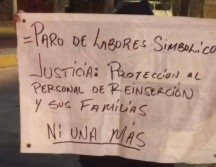 =PARO DE LABORES SIMBOLICO
JUSTICIA: PROTECCIÓN AL
PERSONAL DE REINSERCIÓN
Y SUS FAMILIAS
NI UNA MAS